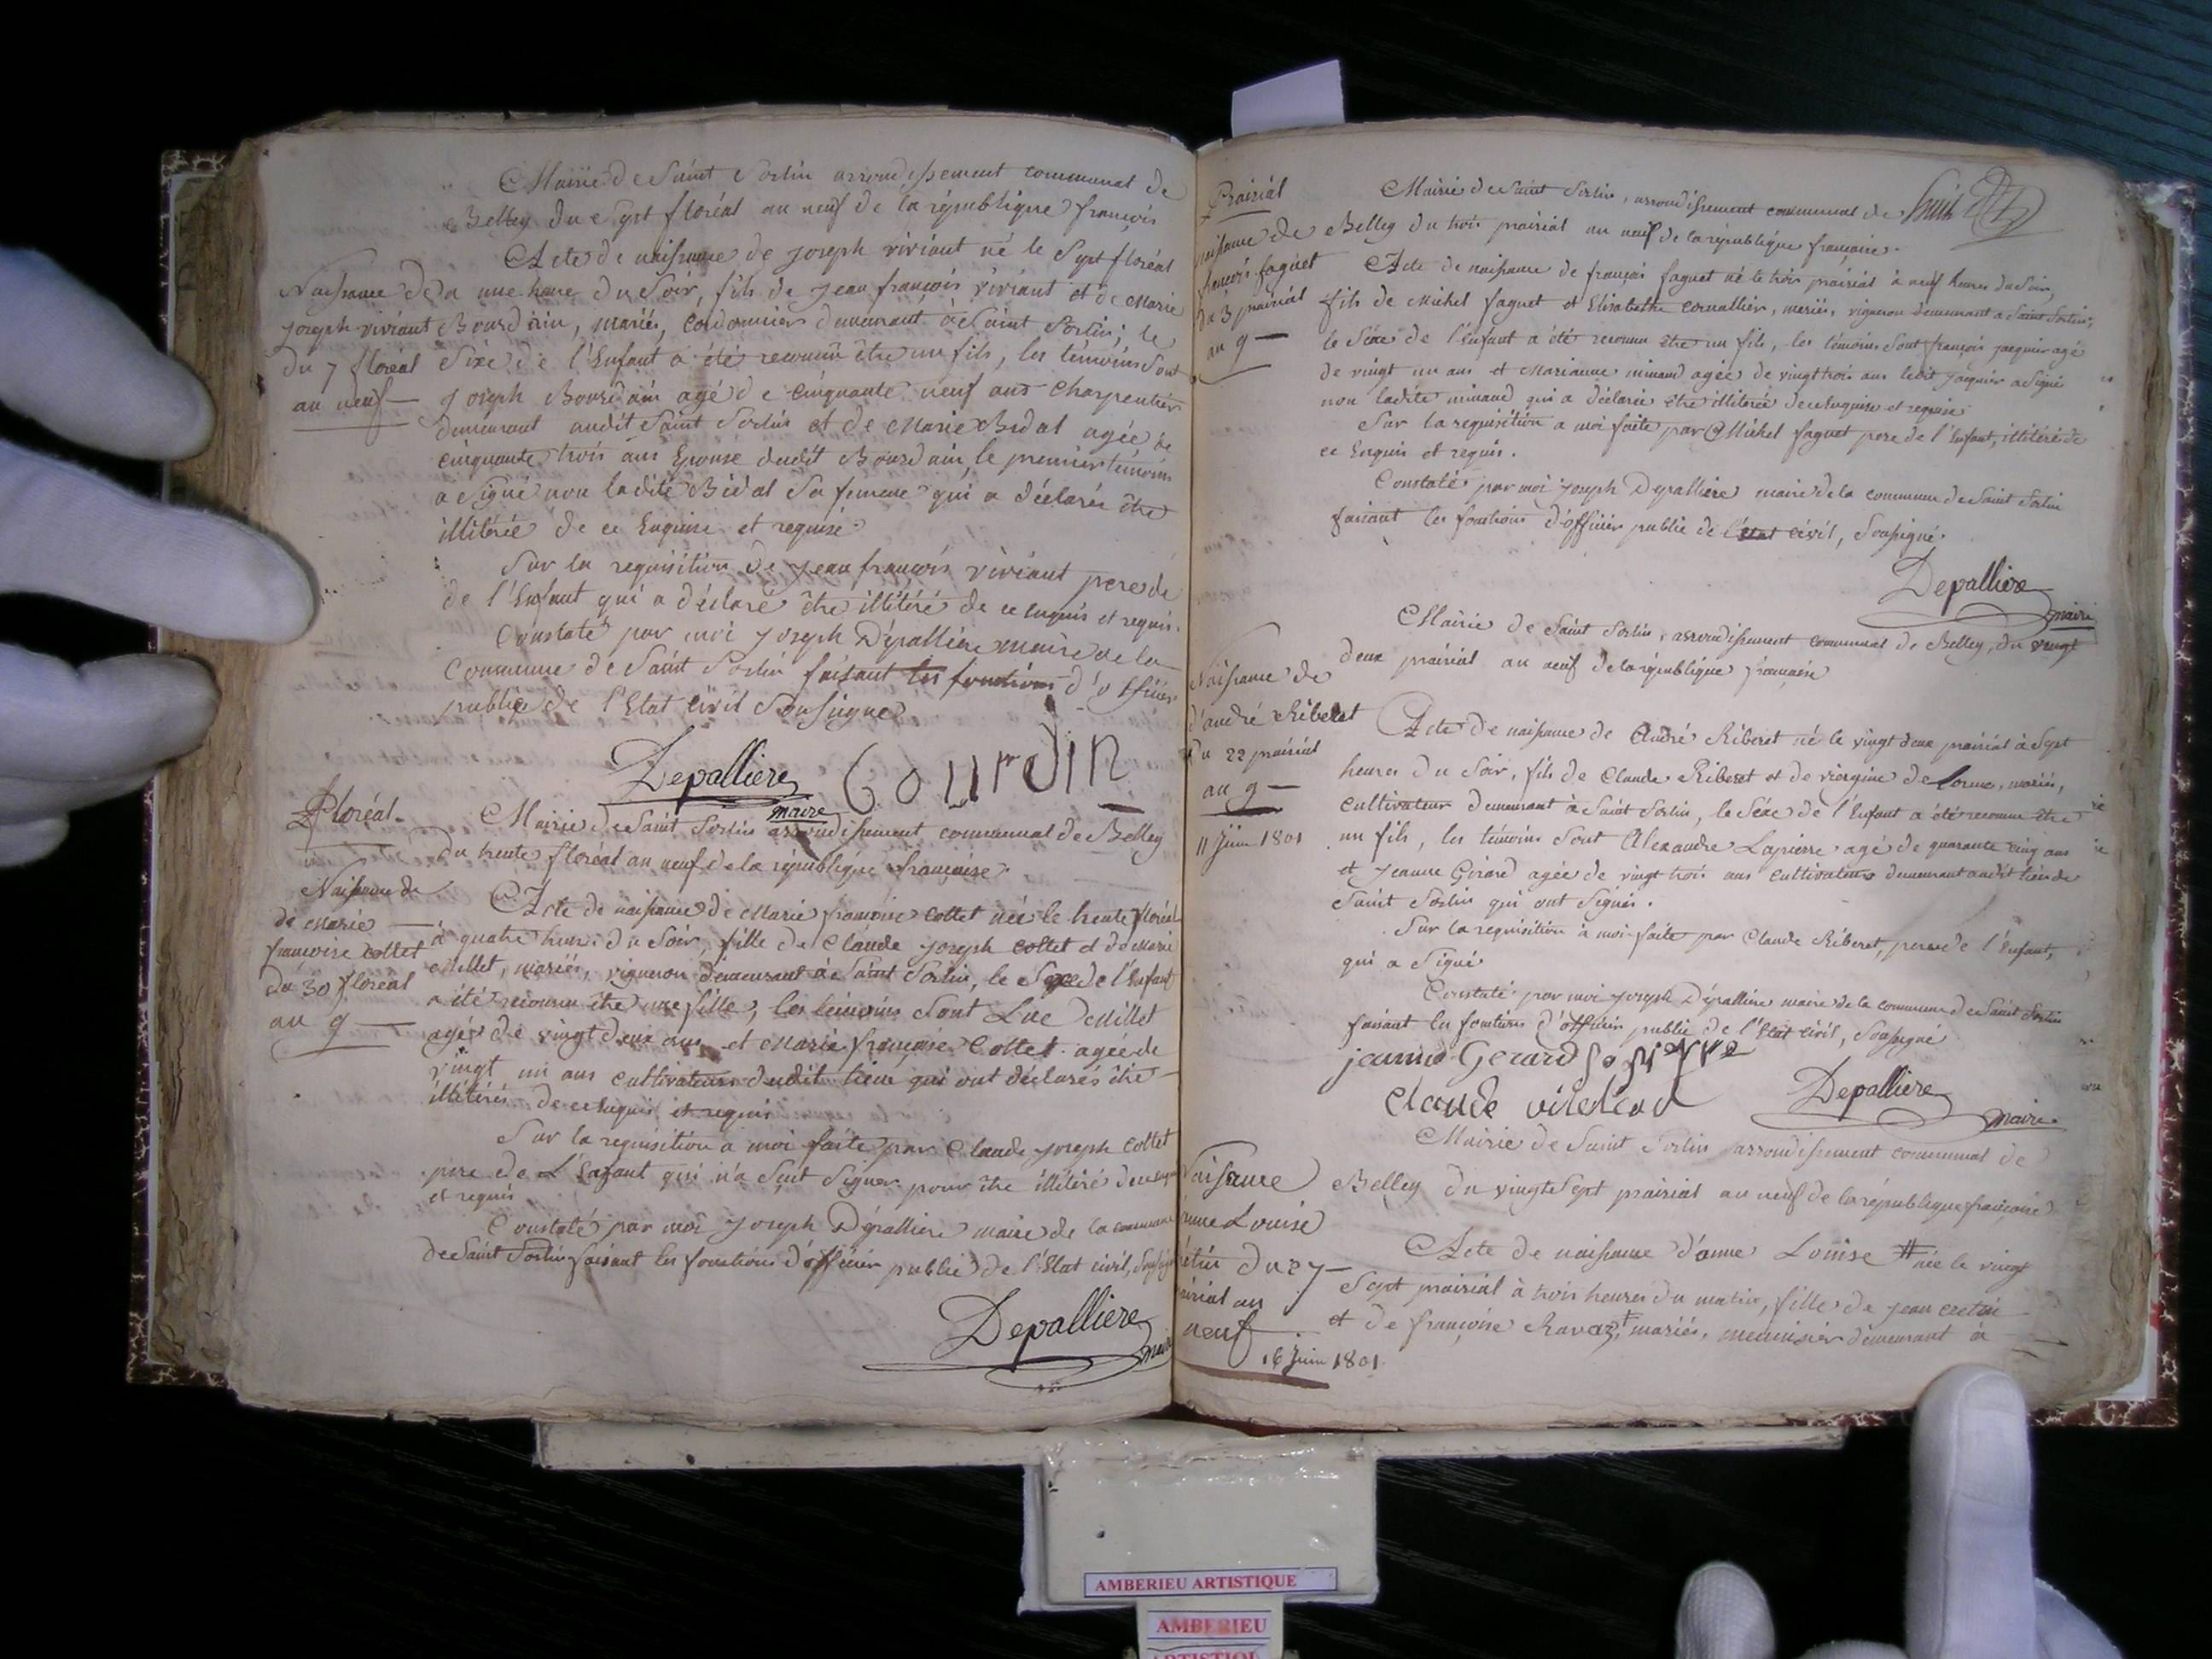 Mairie de Saint Sorlin arrondissement communal de
Belley du sept floréal an neuf de la république françois
Acte de naissance de Joseph viviant né le Sept floréal
Naissance de
Joseph viviant
du 7 floréal
an neuf
a une heure du Soir, fils de Jean françois viviant et de Marie
Bourdin, mariés, cordonnier demeurant à Saint Sorlin; le
Sixe de l'Enfant a été reconnu être un fils, les témoins Sont
Joseph Bourdain agé de cinquante neuf ans charpentier
demeurant audit Saint Sorlin et de Marie Bidal agée de
cinquante trois ans Epouse dudit Bourdain, le premier témoin
a Signé non ladite Bidal Sa femme qui a déclarée être
illitérée de ce Enquise et requise
Sur la requisition de Jean françois viviant pere de
de l'Enfant qui a déclaré être illitéré de ce enquis et requis.
Constaté par moi Joseph Dépallière maire de la
Commune de Saint Sorlin faisant les fonctions d'officier
public de l'Etat civil Soussigné
Depalliere
maire
Floréal
Mairie de Saint Sorlin arrondissement communal de Belley
du trente floréal an neuf de la république française
Naissance de
de Marie
françoise collet
du 30 floréal
an 9
Acte de naissance de Marie françoise collet née le trente floréal
à quatre heures du Soir, fille de Claude Joseph collet et de Marie
Millet, mariés, vigneron demeurant à Saint Sorlin, le Sexe de l'Enfant
a été reconnu être une fille, les témoins Sont Luc Millet
agé de vingt deux ans et Marie françoise Collet agée de
vingt un ans cultivateurs dudit lieu qui ont déclarés être
illitérés de ce enquis et requis
Sur la requisition a moi faite par Claude Joseph collet
pere de L'Enfant qui n'a Sçut Signer pour être illitéré de ce enquis
et requis
Constaté par moi Joseph Dépallière maire de la commune
de Saint Sorlin faisant les fonctions d'officier public de l'Etat civil, Soussigné
Depalliere
maire
Prairial
naissance de
francois faguet
du 3 prairial
an 9
Mairie de Saint Sorlin, arrondissement communal de
huit
Belley du trois prairial an neuf de la république française.
Acte de naissance de français faguet né le trois prairial à neuf heures du Soir,
fils de Michel faguet et Elisabethe cornallier, mariés, vigneron demeurant a Saint Sorlin,
le Séxe de l'Enfant a été reconnu être un fils, les témoins Sont françois jacquier agé
de vingt un ans et Marianne minaud agée de vingt trois ans ledit jacquier a Signé
non ladite minaud qui a déclarée être illitérée de ce enquise et requise
Sur la requisition a moi faite par Michel faguet pere de l'Enfant, illitéré de
ce Enquis et requis.
Constaté par moi Joseph Depallière maire de la commune de Saint Sorlin
faisant les fonctions d'officier public de l'état civil, Soussigné.
Depalliere
maire
Mairie de Saint Sorlin, arrondissement communal de Belley, du vingt
deux prairial an neuf de la république française
Naissance de
d'andré Riberet
du 22 prairial
an 9
11 Juin 1801
Acte de naissance de André Riberet né le vingt deux prairial à Sept
heures du Soir, fils de Claude Riberet et de viergine de lorme, mariés,
cultivateur demeurant à Saint Sorlin, le Séxe de l'Enfant a été reconnu être
un fils, les témoins Sont Alexandre Lapierre agé de quarante cinq ans
et Jeanne Girard agée de vingt trois ans cultivateurs demeurant audit lieu de
Saint Sorlin qui ont Signés.
Sur la requisition à moi faite par Claude Riberet, pere de l'Enfant,
qui a Signé
Constaté par moi Joseph Dépallière maire de la commune de Saint Sorlin
faisant les fonctions d'officier public de l'Etat civil, Soussigné
jeanne Gerard
Claude
Depalliere
maire
Mairie de Saint Sorlin arrondissement communal de
Belley du vingt Sept prairial an neuf de la république française
Naissance
anne Louise
cretin du 27
prairial an
neuf
16 Juin 1801
Acte de naissance d'anne Louise # née le vingt
Sept prairial à trois heures du matin, fille de Jean cretin
et de françoise Ravaz, mariés, meunisier demeurant à
AMBERIEU ARTISTIQUE
AMBERIEU
ARTISTIQUE